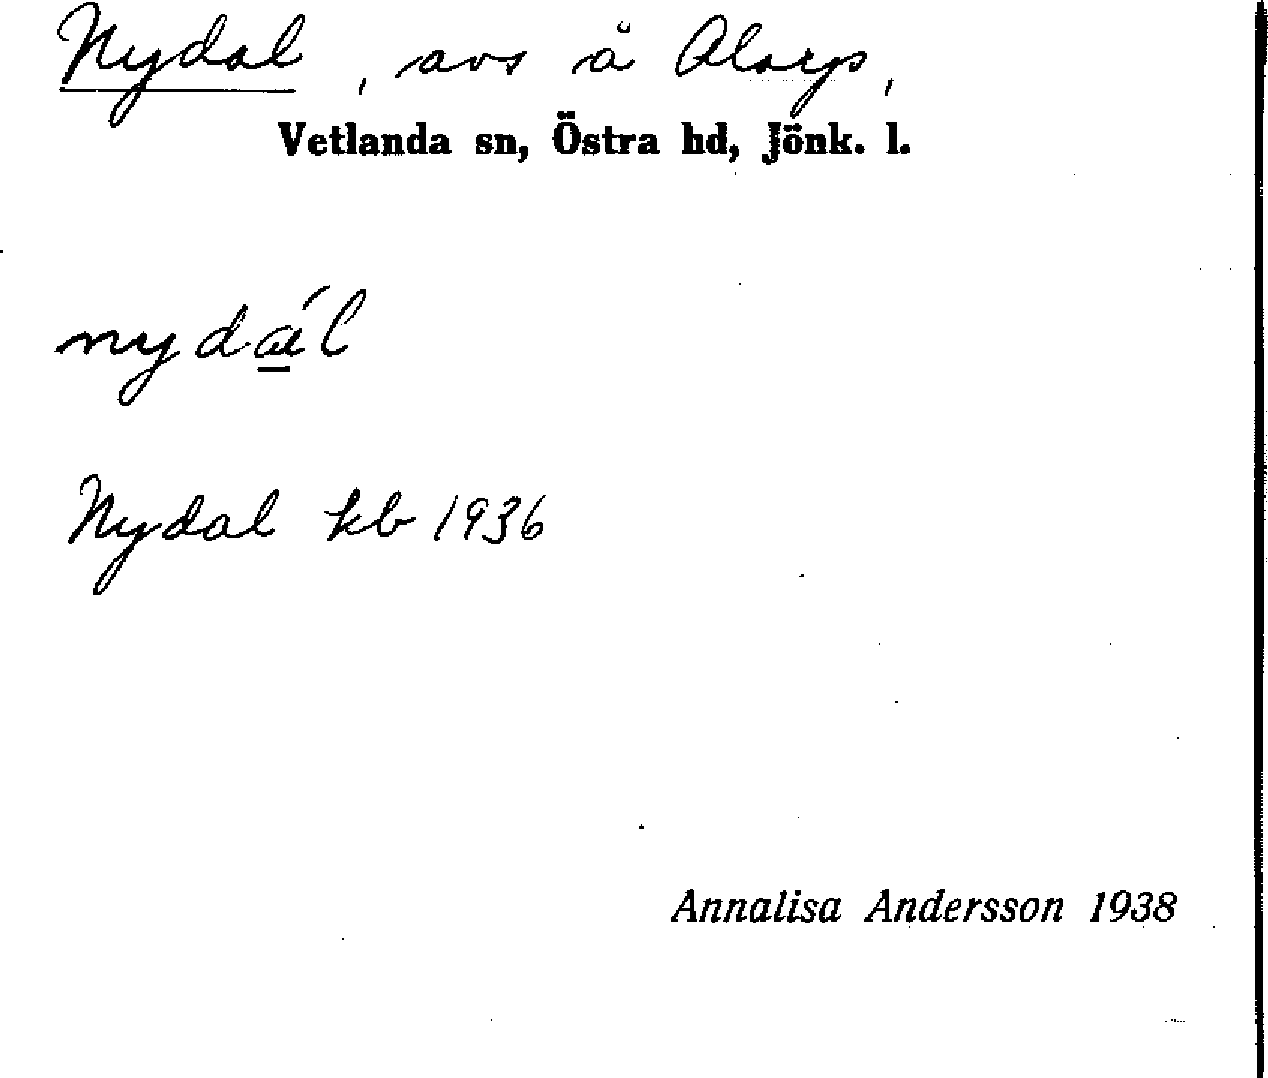 Nydal, avs å Alarp,
Vetlanda sn, Östra hd, Jönk. l.
nydá̲l
Nydal kb 1936
Annalisa Andersson 1938